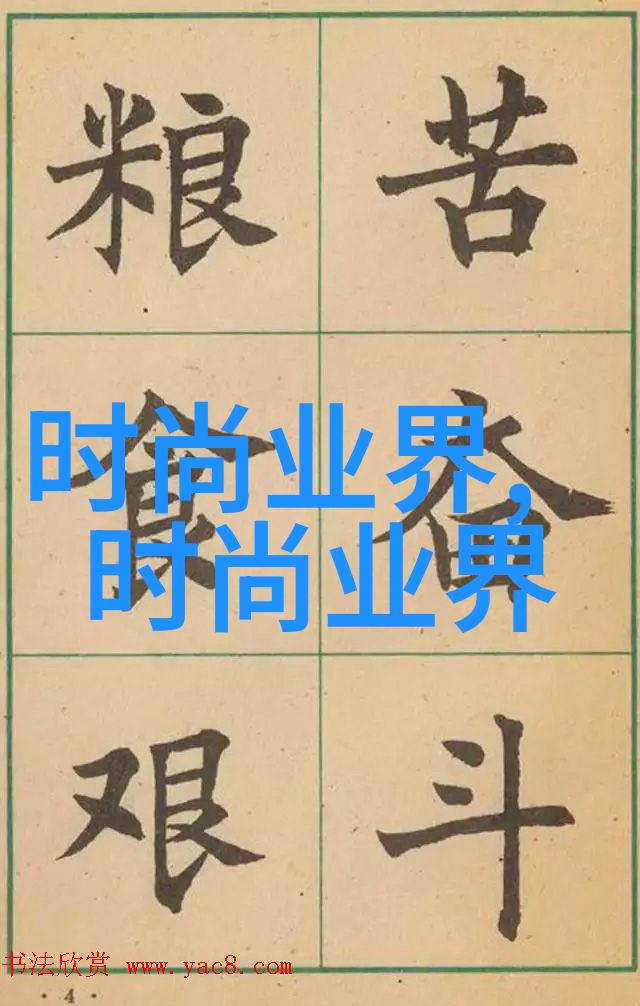 粮食艰
苦奋斗
时尚业界,
时尚业界
书法欣赏 www.yac8.com
· 4 ·